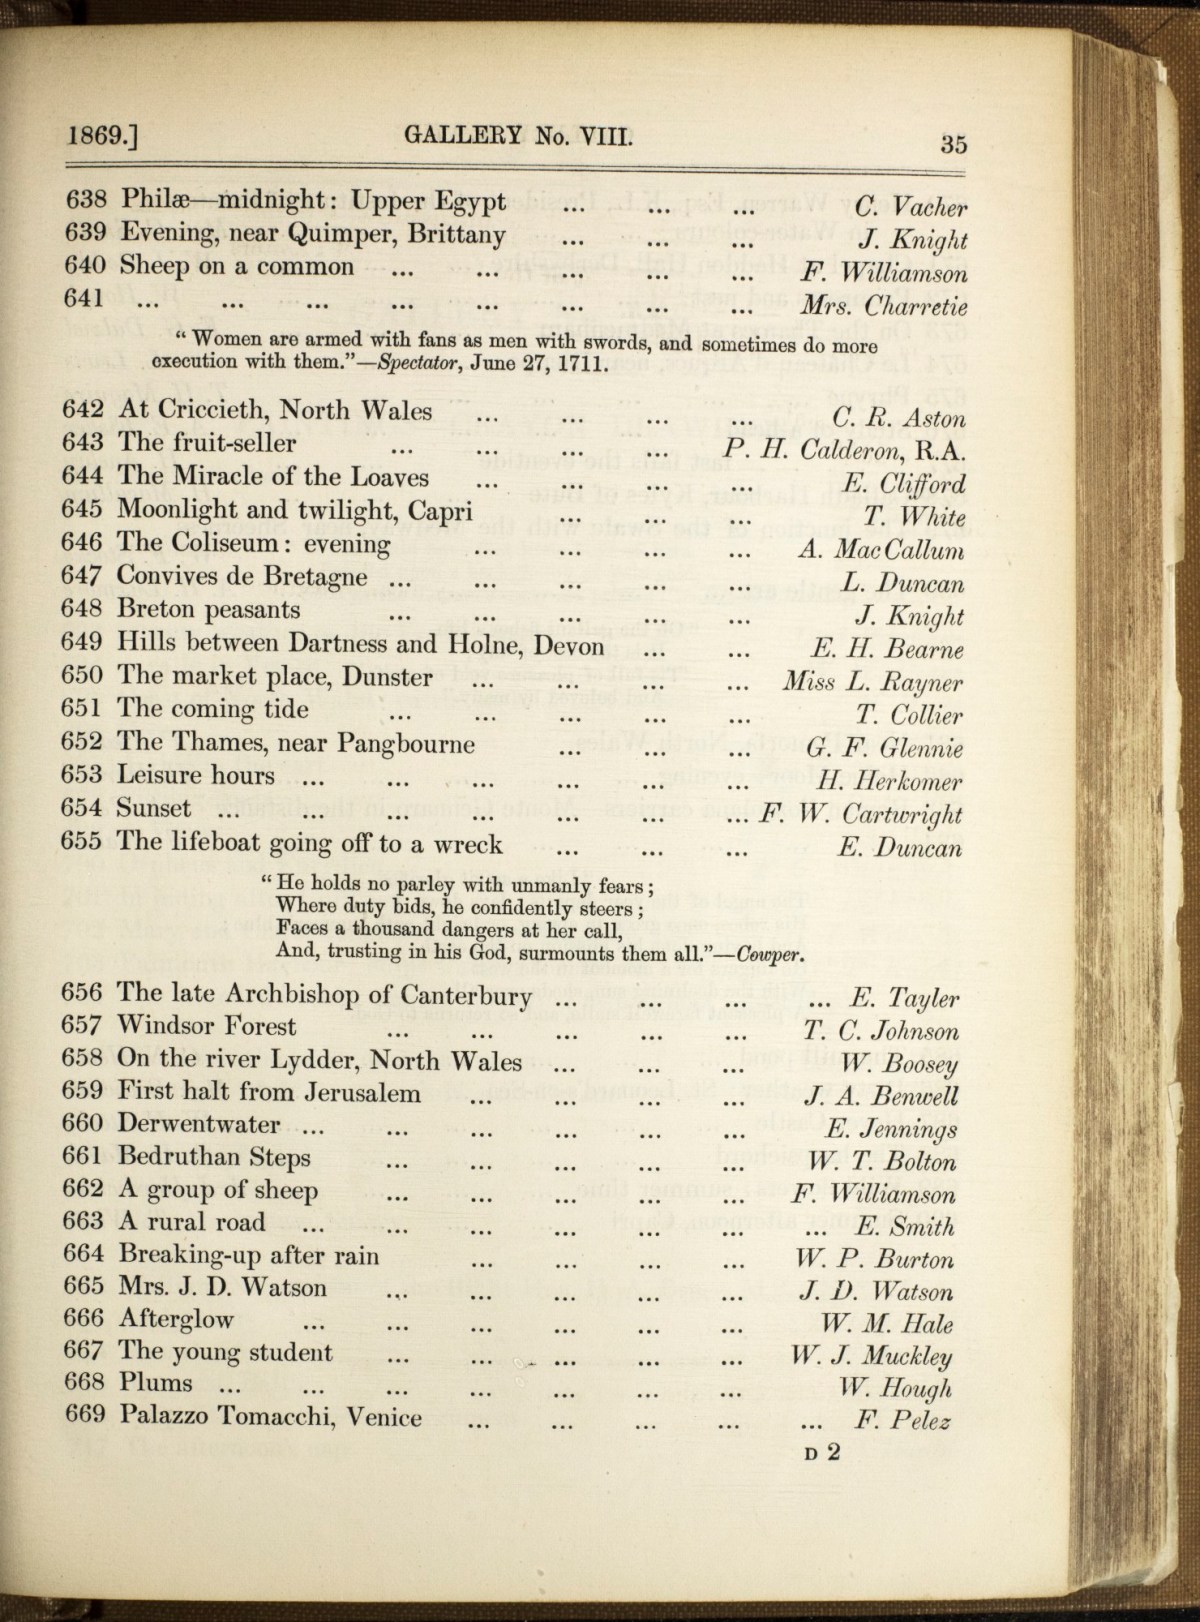 1869.] GALLERY No. VIII. 35
638 Philæ—midnight: Upper Egypt ... ... ... C. Vacher
639 Evening, near Quimper, Brittany ... ... ... J. Knight
640 Sheep on a common ... ... ... ... ... F. Williamson
641 ... ... ... ... ... ... ... ... Mrs. Charretie
“Women are armed with fans as men with swords, and sometimes do more
execution with them.”—Spectator, June 27, 1711.
642 At Criccieth, North Wales ... ... ... ... C. R. Aston
643 The fruit-seller ... ... ... ... P. H. Calderon, R.A.
644 The Miracle of the Loaves ... ... ... ... E. Clifford
645 Moonlight and twilight, Capri ... ... ... T. White
646 The Coliseum: evening ... ... ... ... A. MacCallum
647 Convives de Bretagne ... ... ... ... ... L. Duncan
648 Breton peasants ... ... ... ... ... J. Knight
649 Hills between Dartness and Holne, Devon ... ... E. H. Bearne
650 The market place, Dunster ... ... ... ... Miss L. Rayner
651 The coming tide ... ... ... ... ... T. Collier
652 The Thames, near Pangbourne ... ... ... G. F. Glennie
653 Leisure hours ... ... ... ... ... ... H. Herkomer
654 Sunset ... ... ... ... ... ... ... F. W. Cartwright
655 The lifeboat going off to a wreck ... ... ... E. Duncan
“He holds no parley with unmanly fears;
Where duty bids, he confidently steers;
Faces a thousand dangers at her call,
And, trusting in his God, surmounts them all.”—Cowper.
656 The late Archbishop of Canterbury ... ... ... ... E. Tayler
657 Windsor Forest ... ... ... ... ... T. C. Johnson
658 On the river Lydder, North Wales ... ... ... W. Boosey
659 First halt from Jerusalem ... ... ... ... J. A. Benwell
660 Derwentwater ... ... ... ... ... ... E. Jennings
661 Bedruthan Steps ... ... ... ... ... W. T. Bolton
662 A group of sheep ... ... ... ... ... F. Williamson
663 A rural road ... ... ... ... ... ... ... E. Smith
664 Breaking-up after rain ... ... ... ... W. P. Burton
665 Mrs. J. D. Watson ... ... ... ... ... J. D. Watson
666 Afterglow ... ... ... ... ... ... W. M. Hale
667 The young student ... ... ... ... ... W. J. Muckley
668 Plums ... ... ... ... ... ... ... W. Hough
669 Palazzo Tomacchi, Venice ... ... ... ... ... F. Pelez
D 2